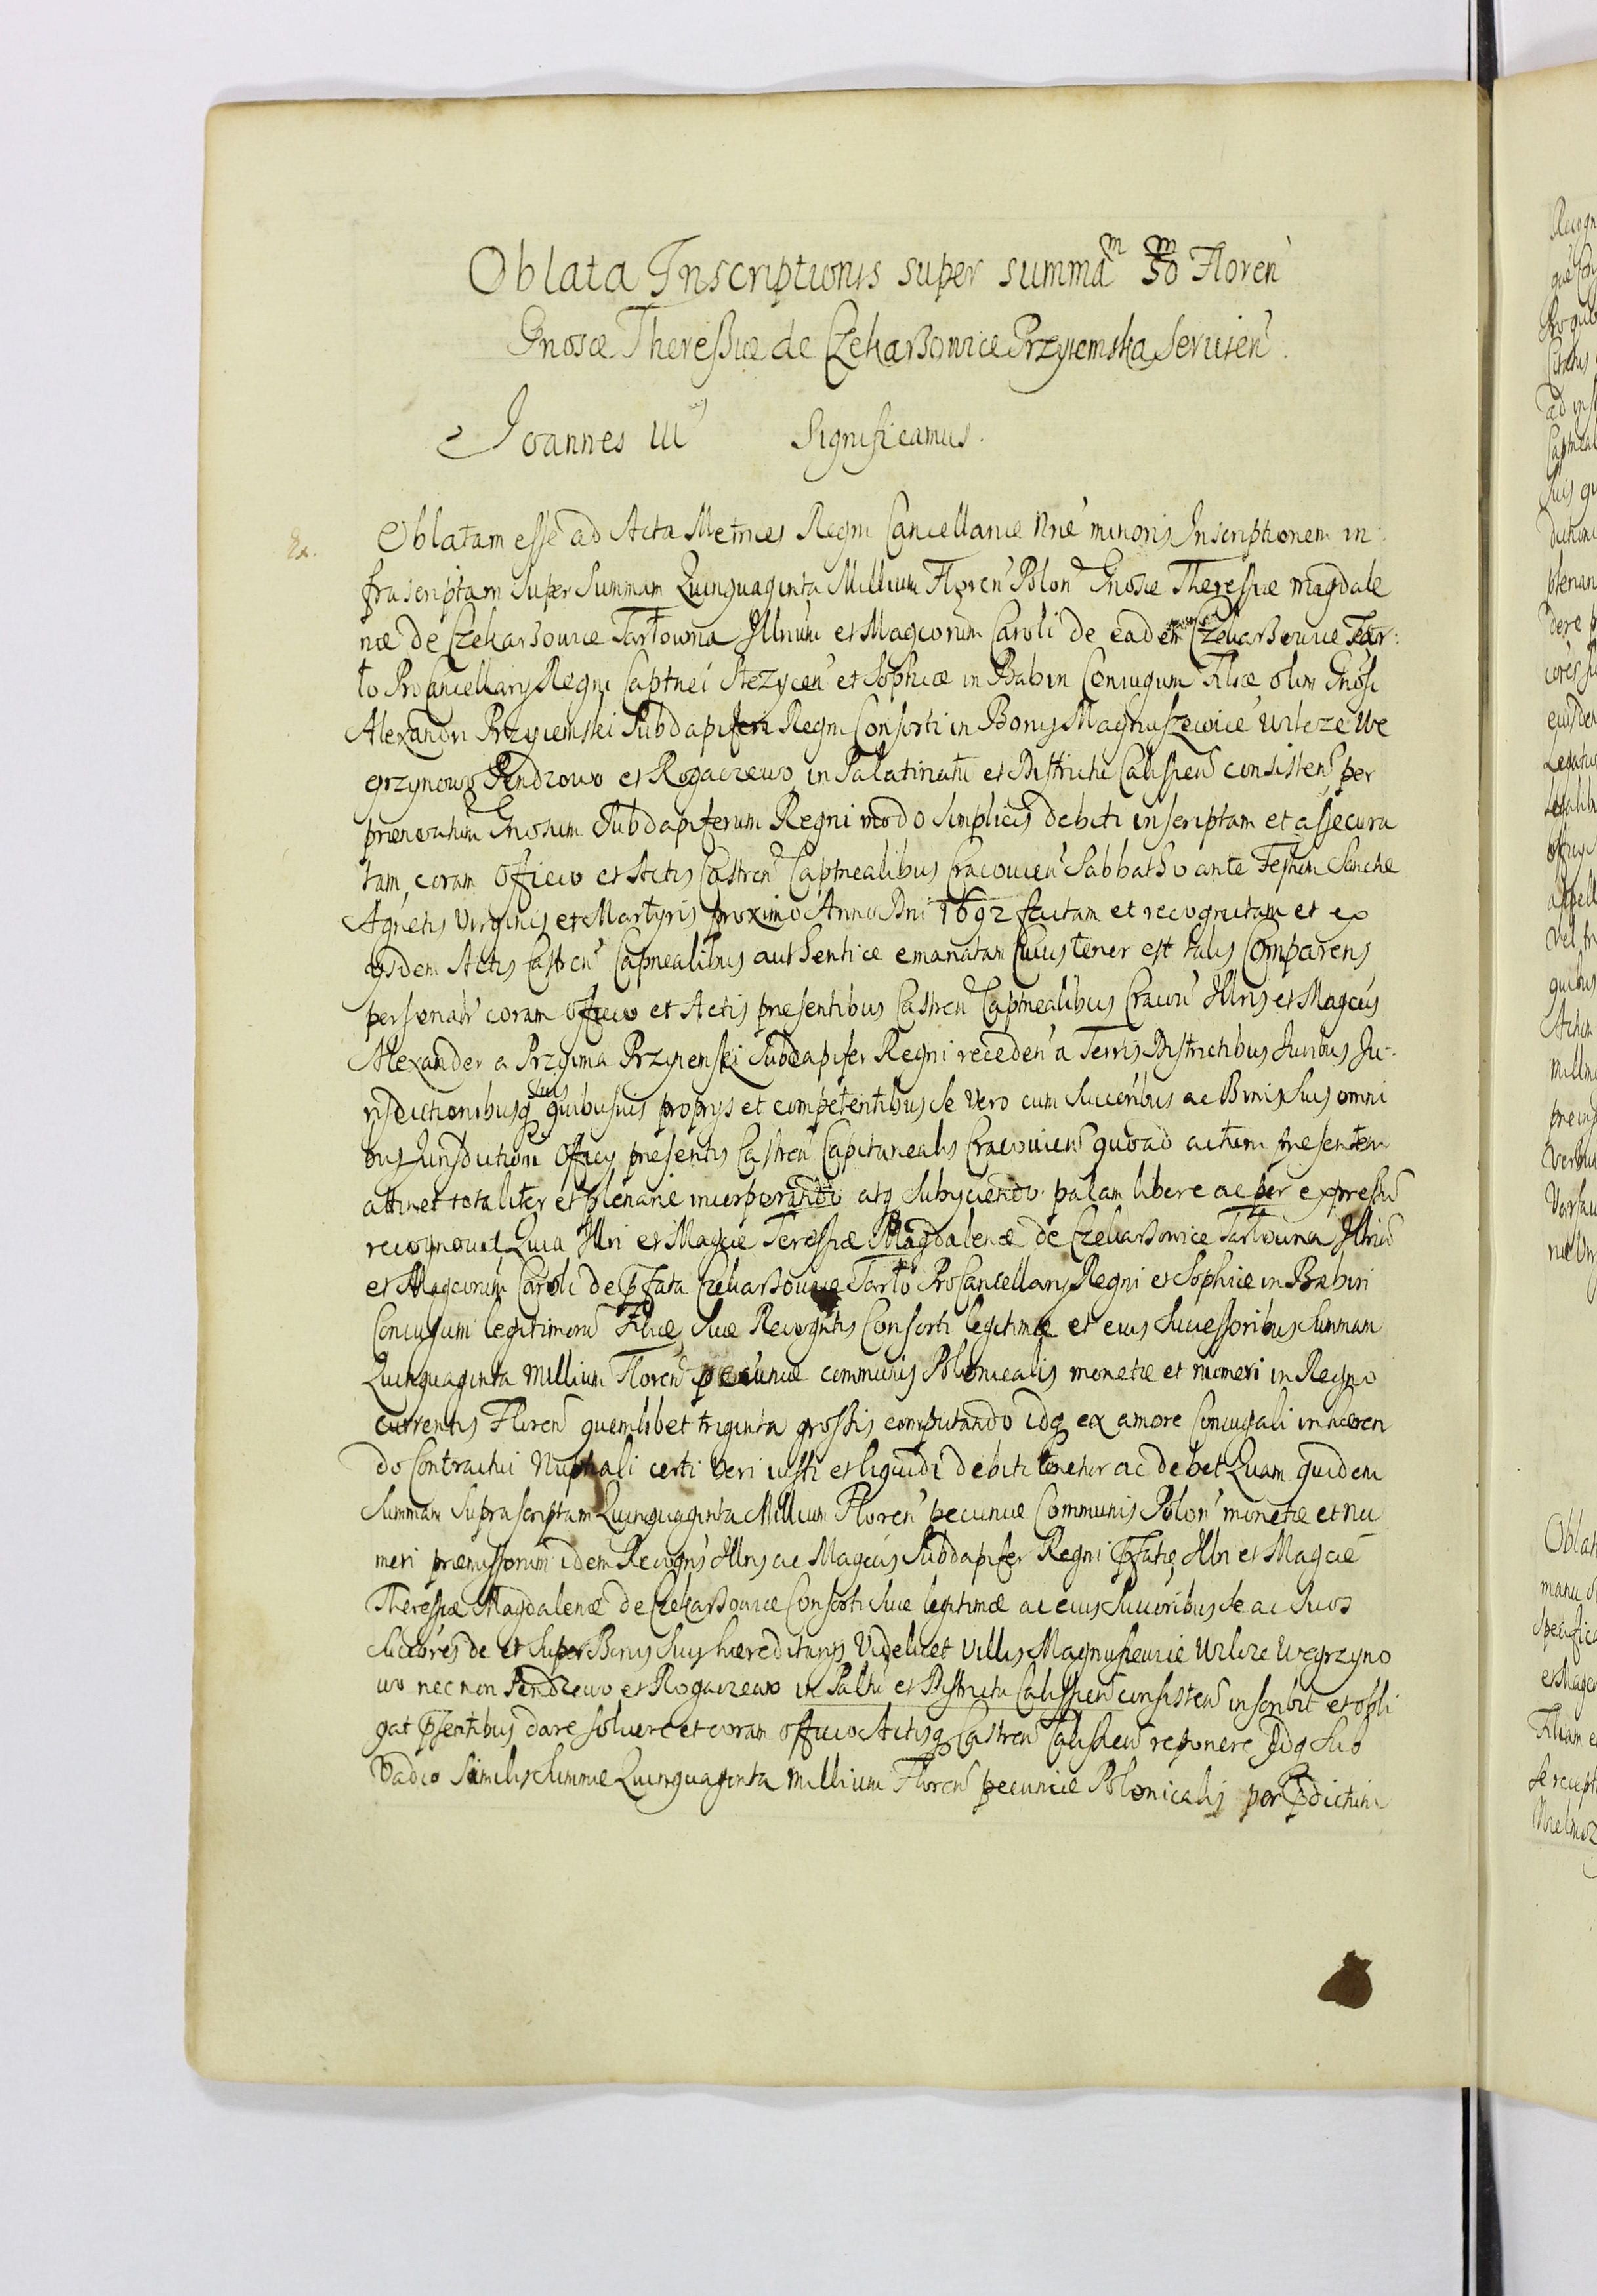 Oblata Inscriptionis super summā^m 50^m Floren
Gnosæ Theressiæ de Czekarßowice Przyiemska Seruien.
Joannes III Significamus.
Ex.
Oblatam esse ad Acta Metrices Regni Cancellariæ Nræ minoris Inscriptionem in:
frascriptam super Summam Quinquaginta Millium Floren Polon Gnosæ Theressiæ Magdale
næ de Czekarßowice Tarłowna Illrium et Magcorum Caroli de eadem Czekarßowice Tar:
ło ProCancellarij Regni Captnei Stezycen et Sophiæ in Babin Coniugum Filiæ olim Gnosi
Alexandri Przyiemski Subdapiferi Regni Consorti in Bonis Magnuszewice Wilcze We
grzynowo Pendzowo et Rogaczewo in Palatinatu et Districtu Calissien consisten per
prænominatum Gnosum Subdapiferum Regni modo simplicis debiti inscriptam et assecura
tam, coram Officio et Actis Castren Captnealibus Cracouien Sabbatho ante Festum Sanctæ
Agnetis Virginis et Martyris proximo Anno Dni 1692 factam et recognitam et ex
ijsdem Actis Castren Capnealibus authentice emanatam Cuius tenor est talis Comparens
personalr coram Officio et Actis præsentibus Castren Captnealibus Cracou Illris et Magcus
Alexander a Przyima Przyiemski Subdapifer Regni receden a Terris Districtibus Iuribus Iu:
risdictionibusq suis quibusuis proprijs et competentibus se vero cum Succoribus ac Bonis Suis omni
bus Iurisdictioni Officij præsentis Castren Capitanealis Cracouien quoad actum præsentem
attinet totaliter et plenarie incorporando atq subijciendo palam libere ac per expressū
recognouit Quia Illri et Magcæ Teressiæ Magdalenæ de Czekarßowice Tarłowna Illriū
et Magcorum Caroli de pfata Czekarßowice Tarło ProCancellarij Regni et Sophiæ in Babin
Coniugum legitimorū Filiæ, suæ Recogntis Consorti legitimæ et eius Successoribus Summam
Quinquaginta Millium Floren pecuniæ communis Polonicalis monetæ et numeri in Regno
currentis Floren quemlibet triginta grossis computando idq ex amore Coniugali inhæren
do Contractui Nuptiali certi veri iusti et liquidi debiti tenetur ac debet Quam quidem
Summam suprascriptam Quinquaginta Millium Floren pecuniæ Communis Polon monetæ et nu
meri præmissorum idem Recogns Illris ac Magcus Subdapifer Regni pfatæ Illri et Magcæ
Theressiæ Magdalenæ de Czekarßowice Consorti suæ legitimæ ac eius Succoribus se ac suos
Succores de et super Bonis suis hæreditarijs Videlicet Villis Magnuszewice Wilcze Wegrzyno
wo nec non Pendzewo et Rogaczewo in Paltu et Districtu Calissien consisten inscribit et obli
gat psentibus dare soluere et coram officio Actisq Castren Calissien reponere Idq sub
Vadio similis summæ Quinquaginta Millium Floren pecuniæ Polonicalis per pdictum